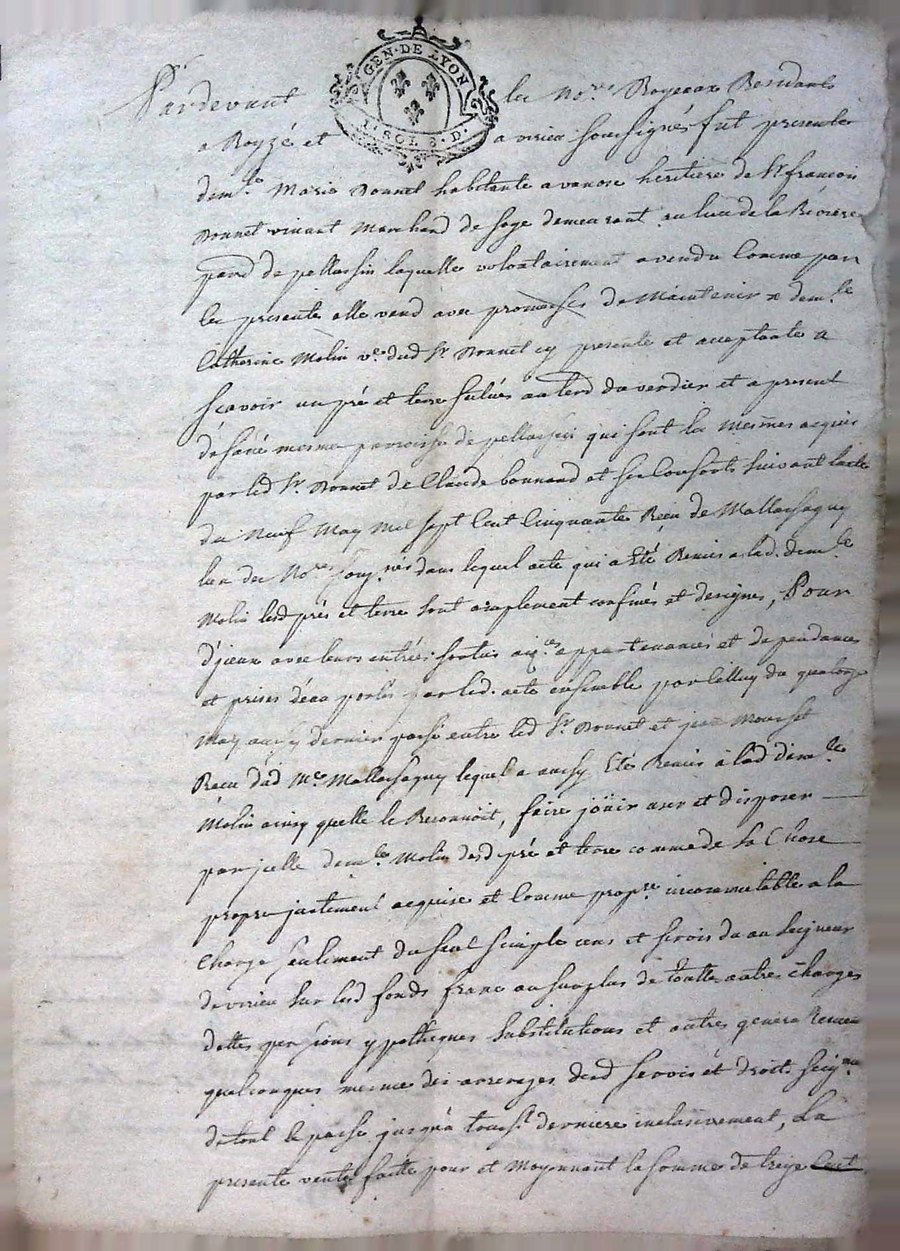 GEN · DE LYON
1 · SOL 6 · D ·
Pardevant les No.res Royaux Residants
a Royzé et a virieu soussignés fut presente
dem.lle Marie Bonnet habitante a vanose héritière de Sr françois
Bonnet vivant Marchand de soye demeurant au lieu de la Rivière
parr de pellussin laquelle volontairement a vendu comme par
les presente elle vend avec promesses de Maintenir x dem.lle
Catherine Molin v.e dud Sr Bonnet cy presente et acceptante a
scavoir un pré et terre situés au terd du verdier et a present
mesme parroisse de pellussin qui sont les mesmes acquis
par led Sr Bonnet de Claude bonnard et ses Consorts suivant lacte
du Neuf May Mil sept Cent Cinquante Receu de Mallassagny
lun des No.res Soug.nes dans lequel acte qui a Eté Remis a lad. dem.lle
Molin lesd prés et terre sont amplement confinés et designés, Pour
d'jceux avec leurs entrées sorties appartenances et dependances
et prises d'eau portés par led. acte ensemble par celluy du quatorze
May aussy dernier passé entre led Sr Bonnet et jean Mourset
Receu dud Me Mallassagny lequel a aussy Eté Remis à lad dem.lle
Molin ainsy quelle le Reconnoit, faire joüir user et disposer
par jcelle dem.lle Molin desd pré et terre comme de sa Chose
propre justement acquise et comme propre incommutable a la
Charge seulement du seul simple cens et servis du au seigneur
de virieu sur lesd fonds franc au surplus de toutte autres charges
dettes pensions ypotheques substitutions et autres
quelconques mesme des arrerages desd servis et droits seig.aux
de tout le passé jusqu'a touss.t derniere inclusivement, La
presente vente faitte pour et Moyennant la somme de treize Cent